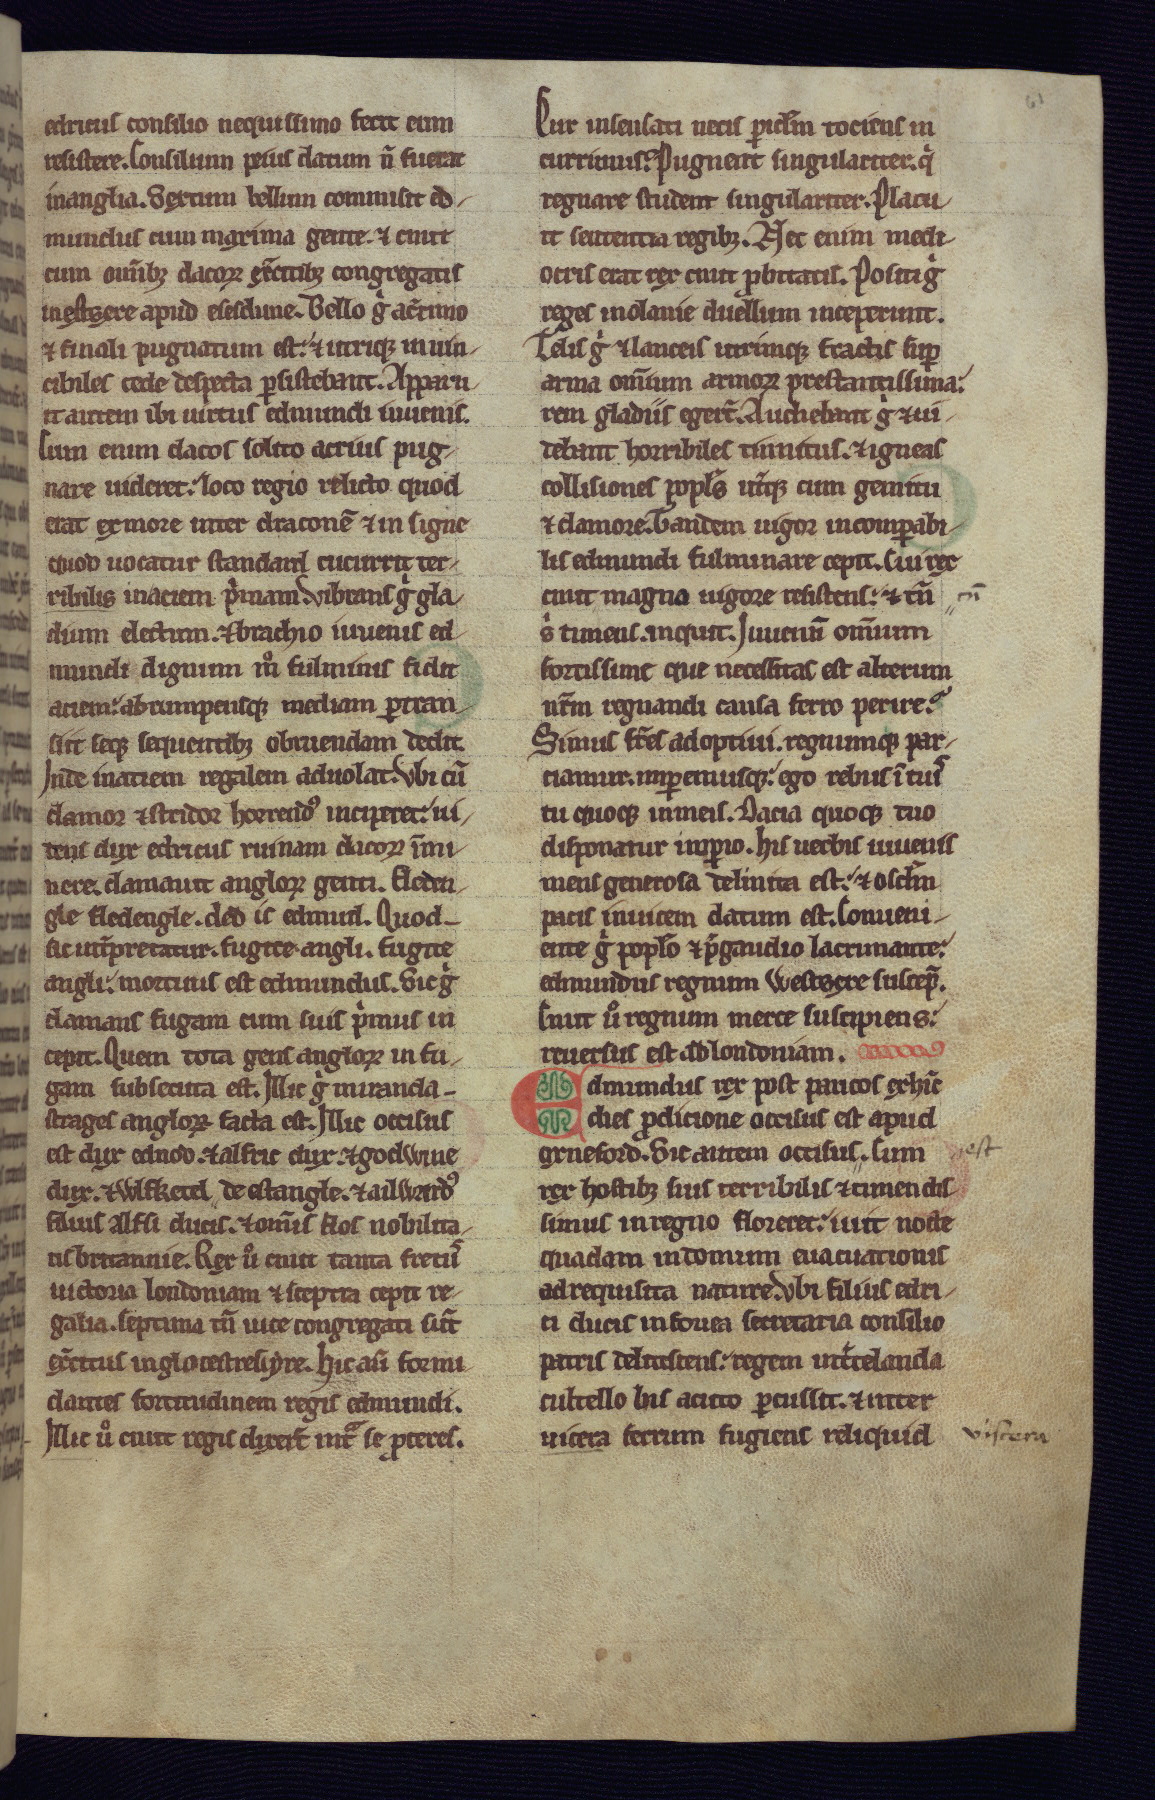 edricus consilio nequissimo fecit eum
resistere. Consilium peius datum n̄ fuerat
in anglia. Sextum bellum commisit ed-
mundus cum maxima gente. ⁊ cnut
cum om̄ibꝫ dacoꝝ ex̄citibꝫ congregatis
in estsexe apud esesdune. Bello g̊ ac̄rimo
⁊ finali pugnatum est. ⁊ utriqꝫ inuin-
cibiles cede despecta ꝑsistebant. Apparu-
it autem ibi uirtus edmundi iuuenis.
Cum enim dacos solito acrius pug-
nare uideret. loco regio relicto quod
erat ex more inter draconē ⁊ in signe
quod uocatur standard cucurrit ter-
ribilis in aciem p̊mam. vibrans g̊ gla-
dium electum. ⁊ brachio iuuenis ed-
mundi dignum m̊ fulminis fidit
aciem. abrumpensqꝫ mediam ꝑtran-
siit seqꝫ sequentibꝫ obruendam dedit.
Inde in aciem regalem aduolat. vbi cū
clamor ⁊ stridor horrendꝰ inciperet. ui-
dens dux edricus ruinam dacoꝝ īmi-
nere. clamauit angloꝝ genti. fleden-
gle fledengle. ded is edmud. Quod
sic int̄pretatur. fugite angli. fugite
angli. mortuus est edmundus. Sic g̊
clamans fugam cum suis p̊mus in
cepit. Quem tota gens angloꝝ in fu-
gam subsecuta est. Illic g̊ miranda
strages angloꝝ facta est. Illic occisus
est dux ednod. ⁊ alfric dux. ⁊ godwine
dux. ⁊ wlfketel de estangle. ⁊ ailwardꝰ
filius alfsi ducis. ⁊ om̄is flos nobilita-
tis britannie. Rex ů cnut tanta fretꝰ
uictoria londoniam ⁊ sceptra cepit re-
galia. Septima tn̄ uice congregati sūt
ex̄citus in glocestresyre. Hic aū formi
dantes fortitudinem regis edmundi.
Illic ů cnut regis dixerūt int̄ se ꝓceres.
Cur insensati necis ꝑiclm̄ tociens in
currimus. Pugnent singulariter. q̊
regnare student singulariter. Placu-
it sententia regibꝫ. Nec enim medi-
ocris erat rex cnut ꝓbitatis. Positi g̊
reges in olanie duellum inceperunt.
Telis g̊ ⁊ lanceis utrimqꝫ fractis suꝑ
arma om̄ium armoꝝ prestantissima.
rem gladiis egerūt. Audiebant g̊ ⁊ ui-
debant horribiles tinnitus. ⁊ igneas
collisiones popl̄s ut̄qꝫ cum gemitu
⁊ clamore. Tandem uigor incomꝑabi-
lis edmundi fulminare cepit. Cui rex
cnut magno uigore resistens. ⁊ tn̄
s̊ timens. inquit. Iuuenū om̄ium
fortissime que necessitas est alterum
nr̄m regnandi causa ferro perire.
Simus frēs adoptiui. regnumqꝫ par-
ciamur. imꝑemusqꝫ. ego rebus ī tuis
tu quoqꝫ in meis. Dacia quoqꝫ tuo
disponatur imꝑio. his uerbis iuuenis
mens generosa delinita est. ⁊ osclm̄
pacis inuicem datum est. Conueni-
ente g̊ popl̄o ⁊ p̄ gaudio lacrimante.
edmundus regnum Westsexe suscep̄.
Cnut ů regnum merce suscipiens.
reuersus est ad londoniam.
Edmundus rex post paucos ex hīc
dies ꝓdicione occisus est apud
oxneford. Sic autem occisus. Cum
rex hostibꝫ suis terribilis ⁊ timendis
simus in regno floreret. iuit nocte
quadam in domum euacuationis
ad requisita nature. vbi filius edri-
ci ducis in fouea secretaria consilio
patris delitescens. regem int̄ celanda
cultello bis acuto ꝑcussit. ⁊ inter
uicera ferrum fugiens reliquid
tn̄
est
viscera
61